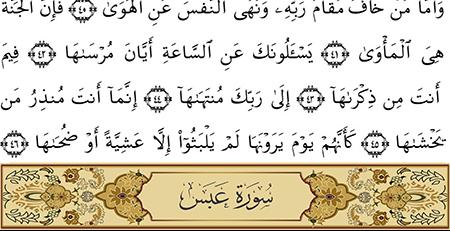 وَأَمَّا مَنْ خَافَ مَقَامَ رَبِّهِۦ وَنَهَى ٱلنَّفْسَ عَنِ ٱلْهَوَىٰ ﴿٤٠﴾ فَإِنَّ ٱلْجَنَّةَ
هِىَ ٱلْمَأْوَىٰ ﴿٤١﴾ يَسْـَٔلُونَكَ عَنِ ٱلسَّاعَةِ أَيَّانَ مُرْسَىٰهَا ﴿٤٢﴾ فِيمَ
أَنتَ مِن ذِكْرَىٰهَآ ﴿٤٣﴾ إِلَىٰ رَبِّكَ مُنتَهَىٰهَآ ﴿٤٤﴾ إِنَّمَآ أَنتَ مُنذِرُ مَن
يَخْشَىٰهَا ﴿٤٥﴾ كَأَنَّهُمْ يَوْمَ يَرَوْنَهَا لَمْ يَلْبَثُوٓا۟ إِلَّا عَشِيَّةً أَوْ ضُحَىٰهَا ﴿٤٦﴾
سُورَةُ عَبَسَ